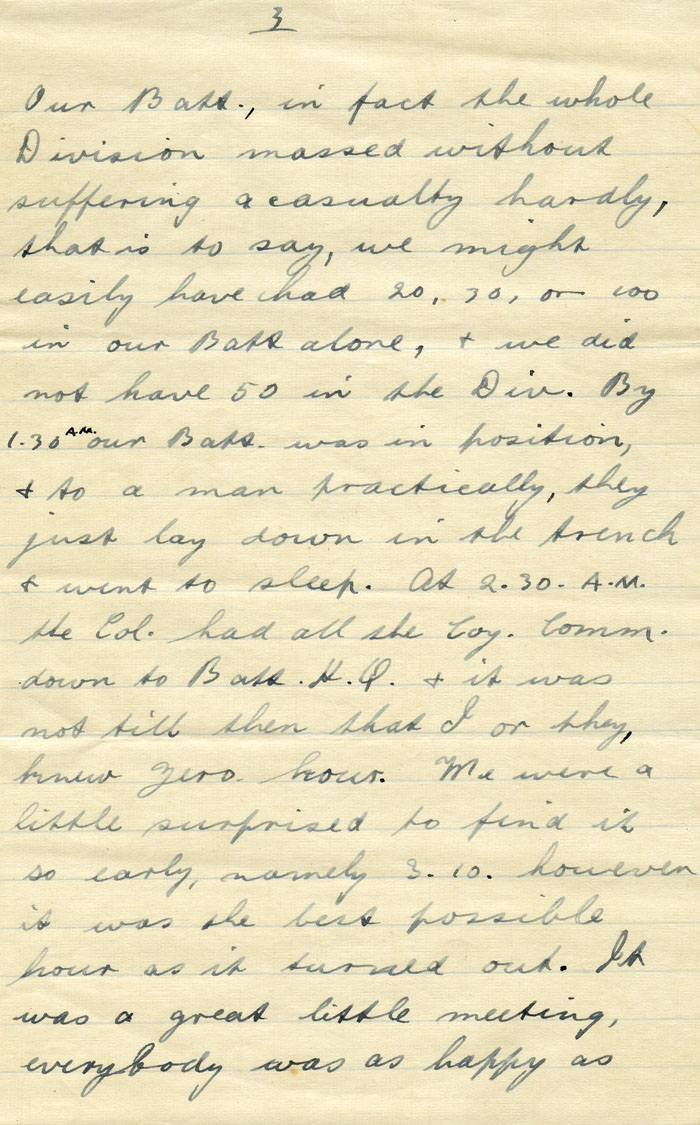 3
Our Batt., in fact the whole
Division massed without
suffering a casualty hardly,
that is to say, we might
easily have had 20, 30, or 100
in our Batt alone, & we did
not have 50 in the Div. By
1.30 A.M. our Batt. was in position,
& to a man practically, they
just lay down in the trench
& went to sleep. At 2.30. A.M.
the Col. had all the Coy. Comm.
down to Batt. H.Q. & it was
not till then that I or they,
knew Zero hour. We were a
little surprised to find it
so early, namely 3.10. however
it was the best possible
hour as it turned out. It
was a great little meeting,
everybody was as happy as